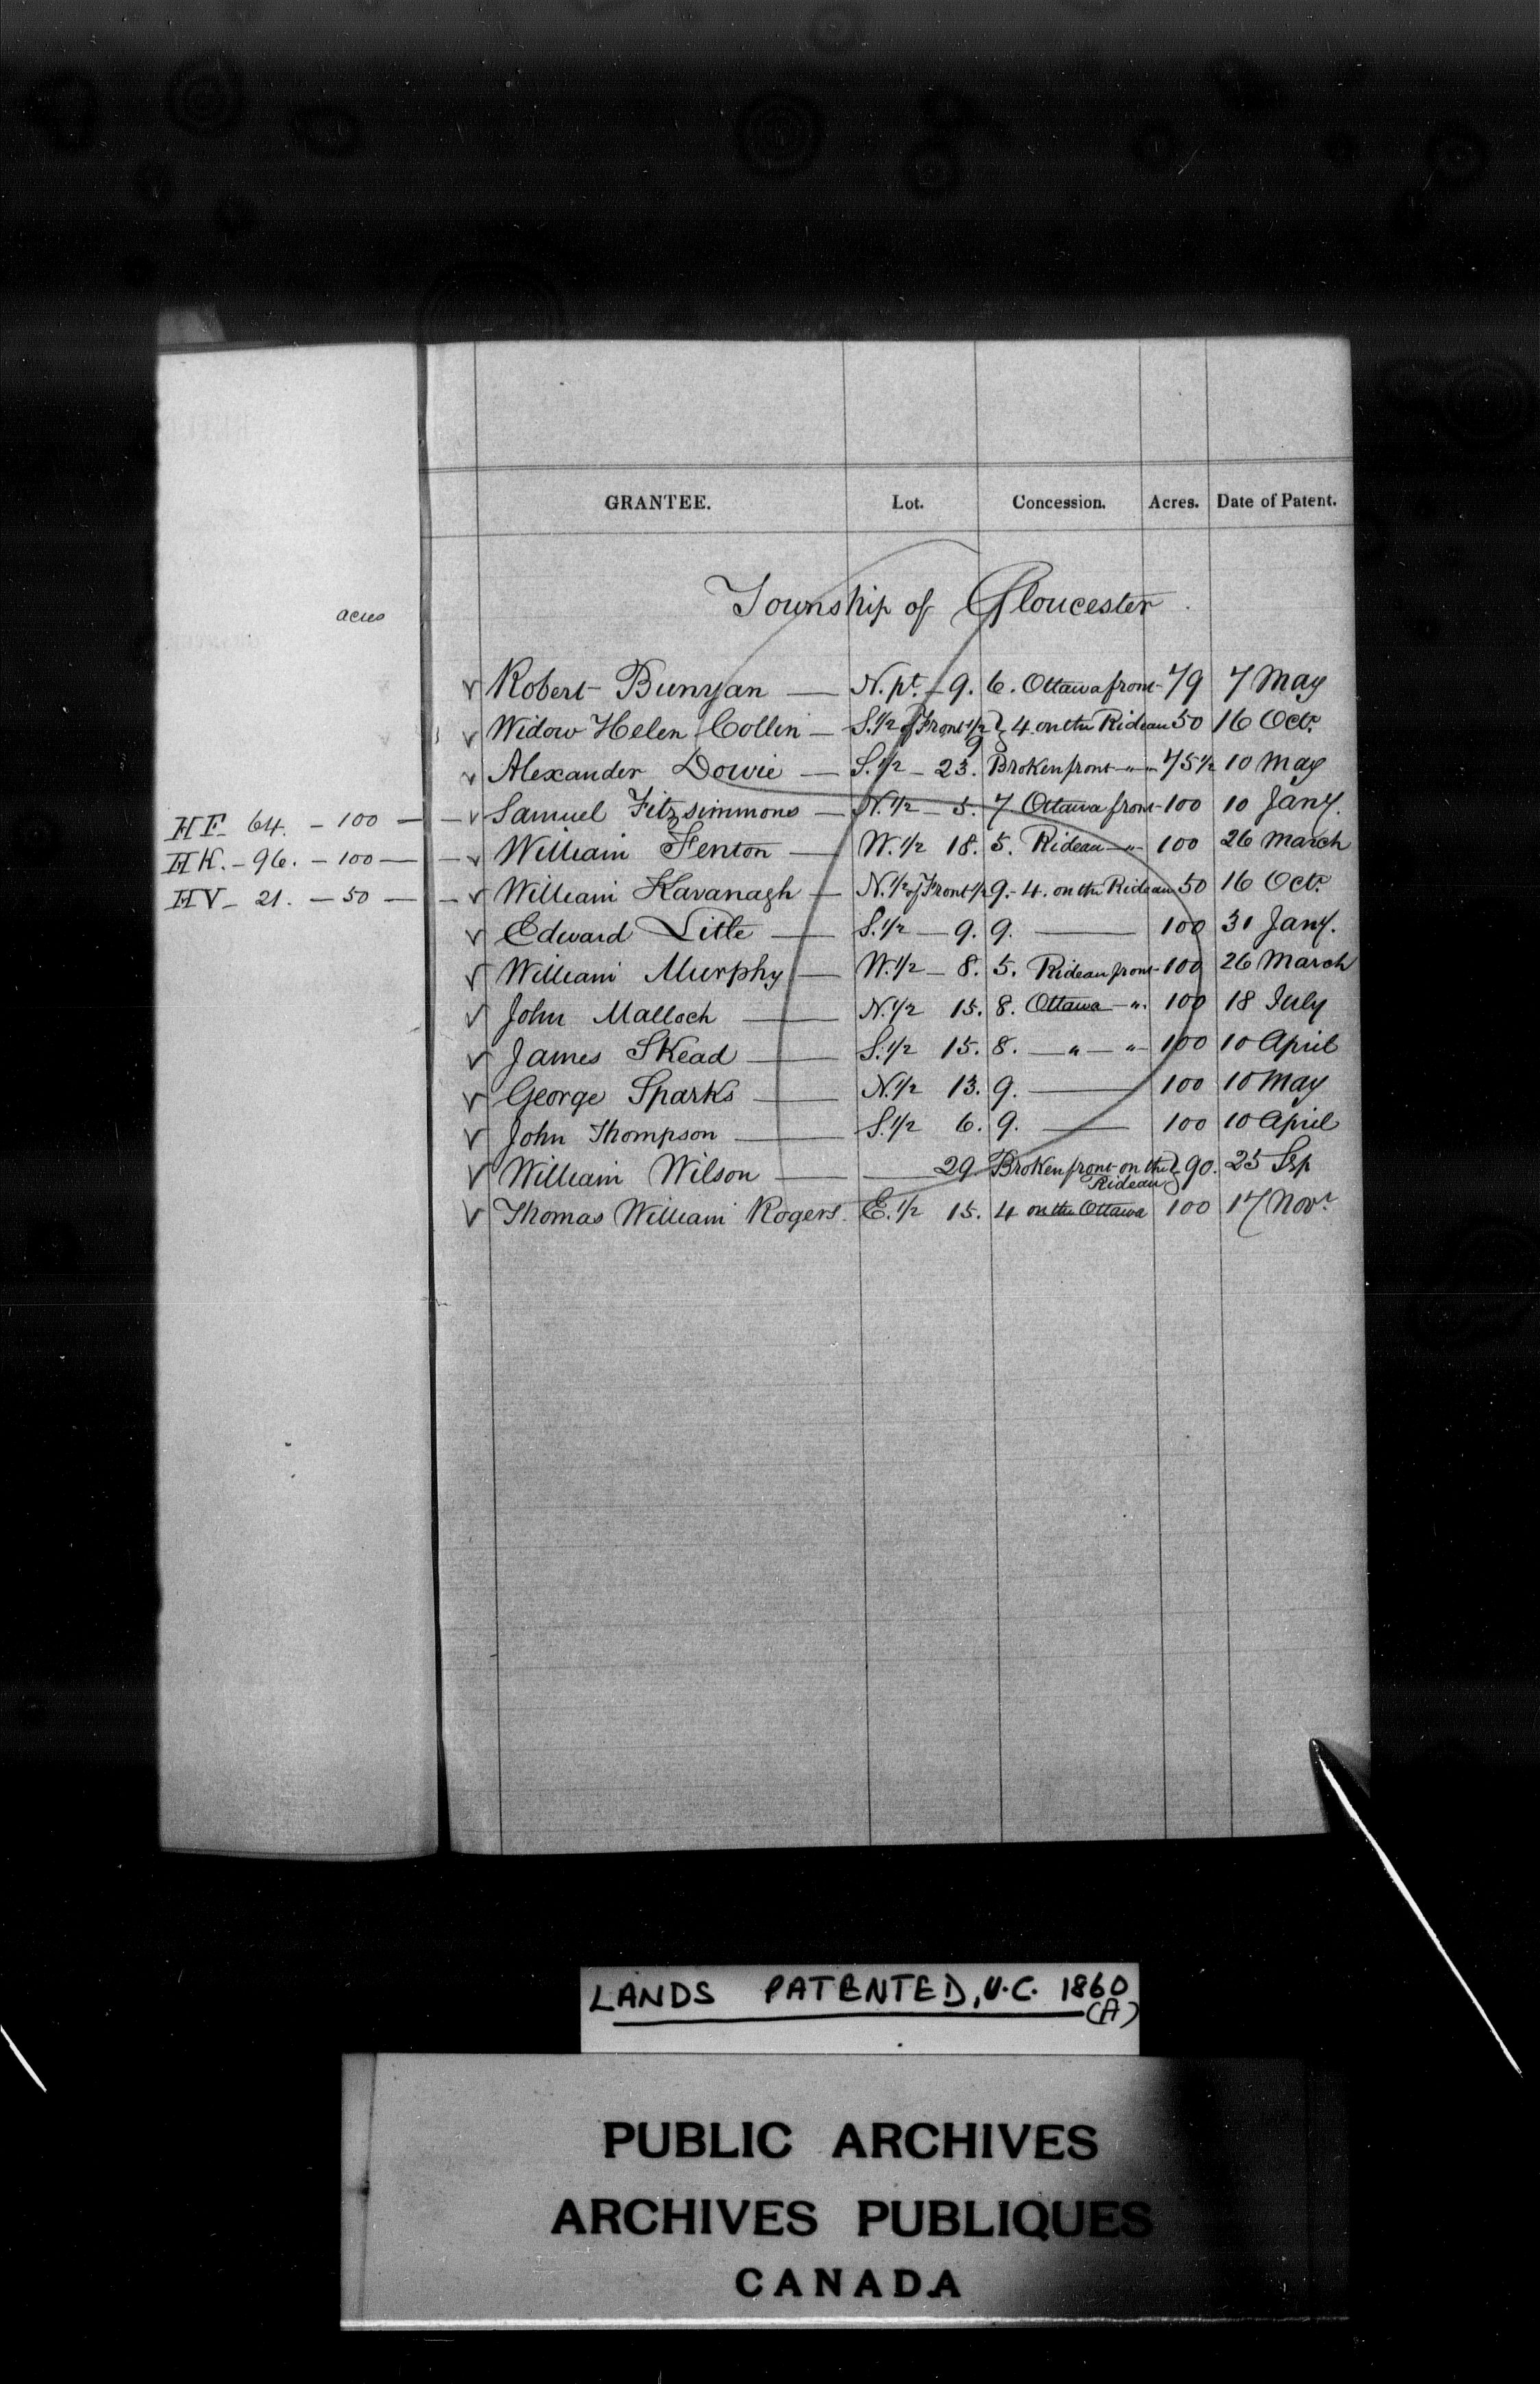 GRANTEE. Lot. Concession. Acres. Date of Patent.
Township of Gloucester
acres
Robert Bunyan — N. pt. – 9. 6. Ottawa front – 79 7 May
Widow Helen Collin — S. 1/2 of Front 1/2 9 } 4. on the Rideau 50 16 Octr.
Alexander Dowie — S. 1/2 – 23. Broken front – " – " 75 1/2 10 May
HF 64. – 100 — Samuel Fitzsimmons — N. 1/2 – 5. 7 Ottawa front – 100 10 Jany.
HK. – 96. – 100 — William Fenton — W. 1/2 18. 5. Rideau – " – 100 26 March
HV – 21. – 50 — William Kavanagh — N. 1/2 of Front 1/2 9. – 4. on the Rideau 50 16 Octr.
Edward Litle — S. 1/2 — 9. 9. — 100 31 Jany.
William Murphy — W. 1/2 – 8. 5. Rideau front – 100 26 March
John Malloch — N. 1/2 15. 8. Ottawa – ". 100 18 July
James Skead — S. 1/2 15. 8. — " — " – 100 10 April
George Sparks — N. 1/2 13. 9. — 100 10 May
John Thompson — S. 1/2 6. 9. — 100 10 April
William Wilson — — 29 Broken front on the Rideau } 90. 25 Sep
Thomas William Rogers. E. 1/2 15. 4 on the Ottawa 100 17 Novr.
LANDS PATENTED, U.C. 1860
(A)
PUBLIC ARCHIVES
ARCHIVES PUBLIQUES
CANADA